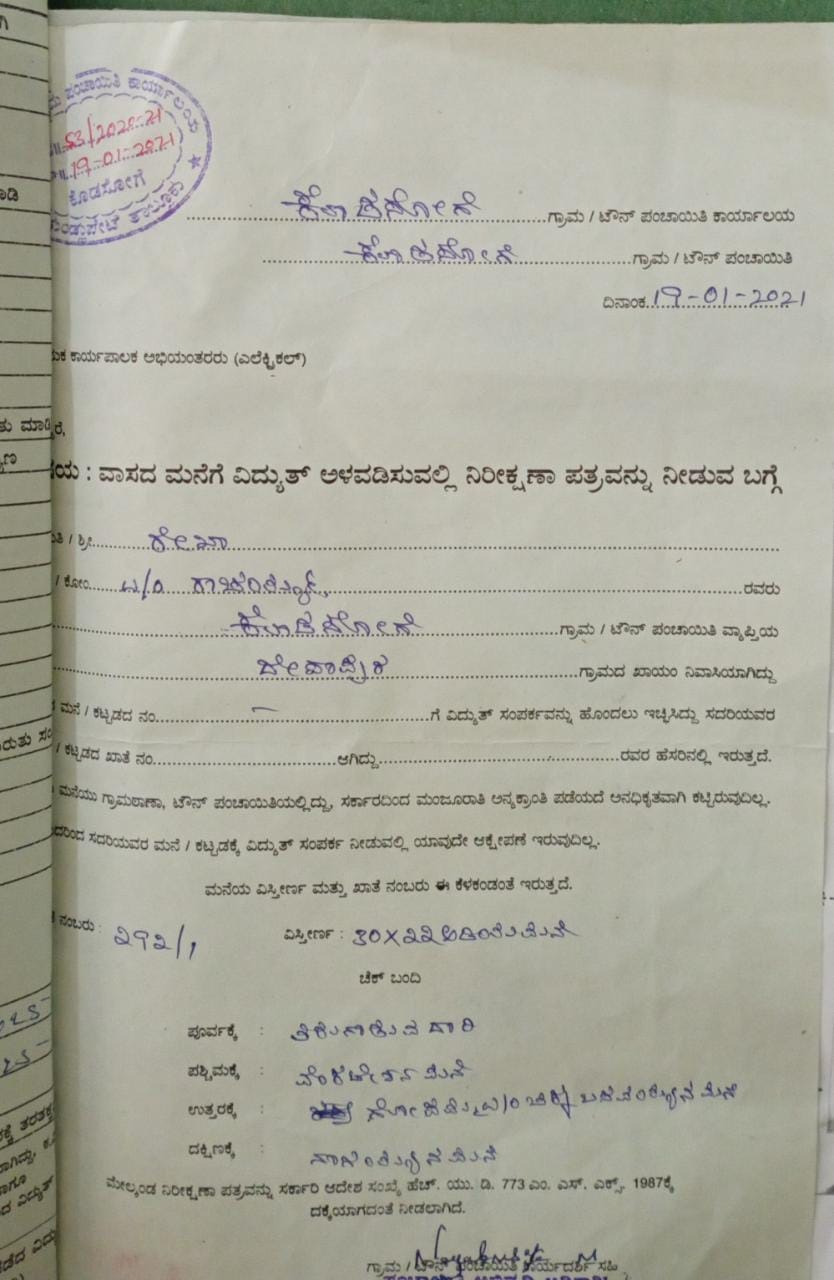 ಪಂಚಾಯಿತಿ ಕಾರ್ಯಾಲಯ
53/2020-21
19-01-2021
ಕೊಡಸೋಗೆ
ತಾಲೂಕು
ಕೊಡಸೋಗೆ ಗ್ರಾಮ / ಟೌನ್ ಪಂಚಾಯಿತಿ ಕಾರ್ಯಾಲಯ
ಕೊಡಸೋಗೆ ಗ್ರಾಮ / ಟೌನ್ ಪಂಚಾಯಿತಿ
ದಿನಾಂಕ 19-01-2021
ಕಾರ್ಯಪಾಲಕ ಅಭಿಯಂತರರು (ಎಲೆಕ್ಟ್ರಿಕಲ್)
: ವಾಸದ ಮನೆಗೆ ವಿದ್ಯುತ್ ಅಳವಡಿಸುವಲ್ಲಿ ನಿರೀಕ್ಷಣಾ ಪತ್ರವನ್ನು ನೀಡುವ ಬಗ್ಗೆ
/ ಶ್ರೀ ರೇಖಾ
/ ಕೋಂ W/O ರವರು
ಕೊಡಸೋಗೆ ಗ್ರಾಮ / ಟೌನ್ ಪಂಚಾಯಿತಿ ವ್ಯಾಪ್ತಿಯ
ಗ್ರಾಮದ ಖಾಯಂ ನಿವಾಸಿಯಾಗಿದ್ದು
ಮನೆ / ಕಟ್ಟಡದ ನಂ. – ಗೆ ವಿದ್ಯುತ್ ಸಂಪರ್ಕವನ್ನು ಹೊಂದಲು ಇಚ್ಛಿಸಿದ್ದು ಸದರಿಯವರ
/ ಕಟ್ಟಡದ ಖಾತೆ ನಂ. ಆಗಿದ್ದು ರವರ ಹೆಸರಿನಲ್ಲಿ ಇರುತ್ತದೆ.
ಮನೆಯು ಗ್ರಾಮಠಾಣಾ, ಟೌನ್ ಪಂಚಾಯಿತಿಯಲ್ಲಿದ್ದು, ಸರ್ಕಾರದಿಂದ ಮಂಜೂರಾತಿ ಅನ್ಯಕ್ರಾಂತಿ ಪಡೆಯದೆ ಅನಧಿಕೃತವಾಗಿ ಕಟ್ಟಿರುವುದಿಲ್ಲ.
ಸದರಿಯವರ ಮನೆ / ಕಟ್ಟಡಕ್ಕೆ ವಿದ್ಯುತ್ ಸಂಪರ್ಕ ನೀಡುವಲ್ಲಿ ಯಾವುದೇ ಆಕ್ಷೇಪಣೆ ಇರುವುದಿಲ್ಲ.
ಮನೆಯ ವಿಸ್ತೀರ್ಣ ಮತ್ತು ಖಾತೆ ನಂಬರು ಈ ಕೆಳಕಂಡಂತೆ ಇರುತ್ತದೆ.
ನಂಬರು : ೨೯೨/1 ವಿಸ್ತೀರ್ಣ : 30X22 ಅಡಿಯ ಮನೆ
ಚೆಕ್ ಬಂದಿ
ಪೂರ್ವಕ್ಕೆ : ತಿರುಗಾಡುವ ದಾರಿ
ಪಶ್ಚಿಮಕ್ಕೆ : ವೆಂಕಟೇಶನ ಮನೆ
ಉತ್ತರಕ್ಕೆ : W/O ಮನೆ
ದಕ್ಷಿಣಕ್ಕೆ : ನಾಗಯ್ಯನ ಮನೆ
ಮೇಲ್ಕಂಡ ನಿರೀಕ್ಷಣಾ ಪತ್ರವನ್ನು ಸರ್ಕಾರಿ ಆದೇಶ ಸಂಖ್ಯೆ ಹೆಚ್. ಯು. ಡಿ. 773 ಎಂ. ಎಸ್. ಎಕ್ಸ್. 1987ಕ್ಕೆ
ದಕ್ಕೆಯಾಗದಂತೆ ನೀಡಲಾಗಿದೆ.
ಗ್ರಾಮ / ಟೌನ್ ಪಂಚಾಯಿತಿ ಕಾರ್ಯದರ್ಶಿ ಸಹಿ